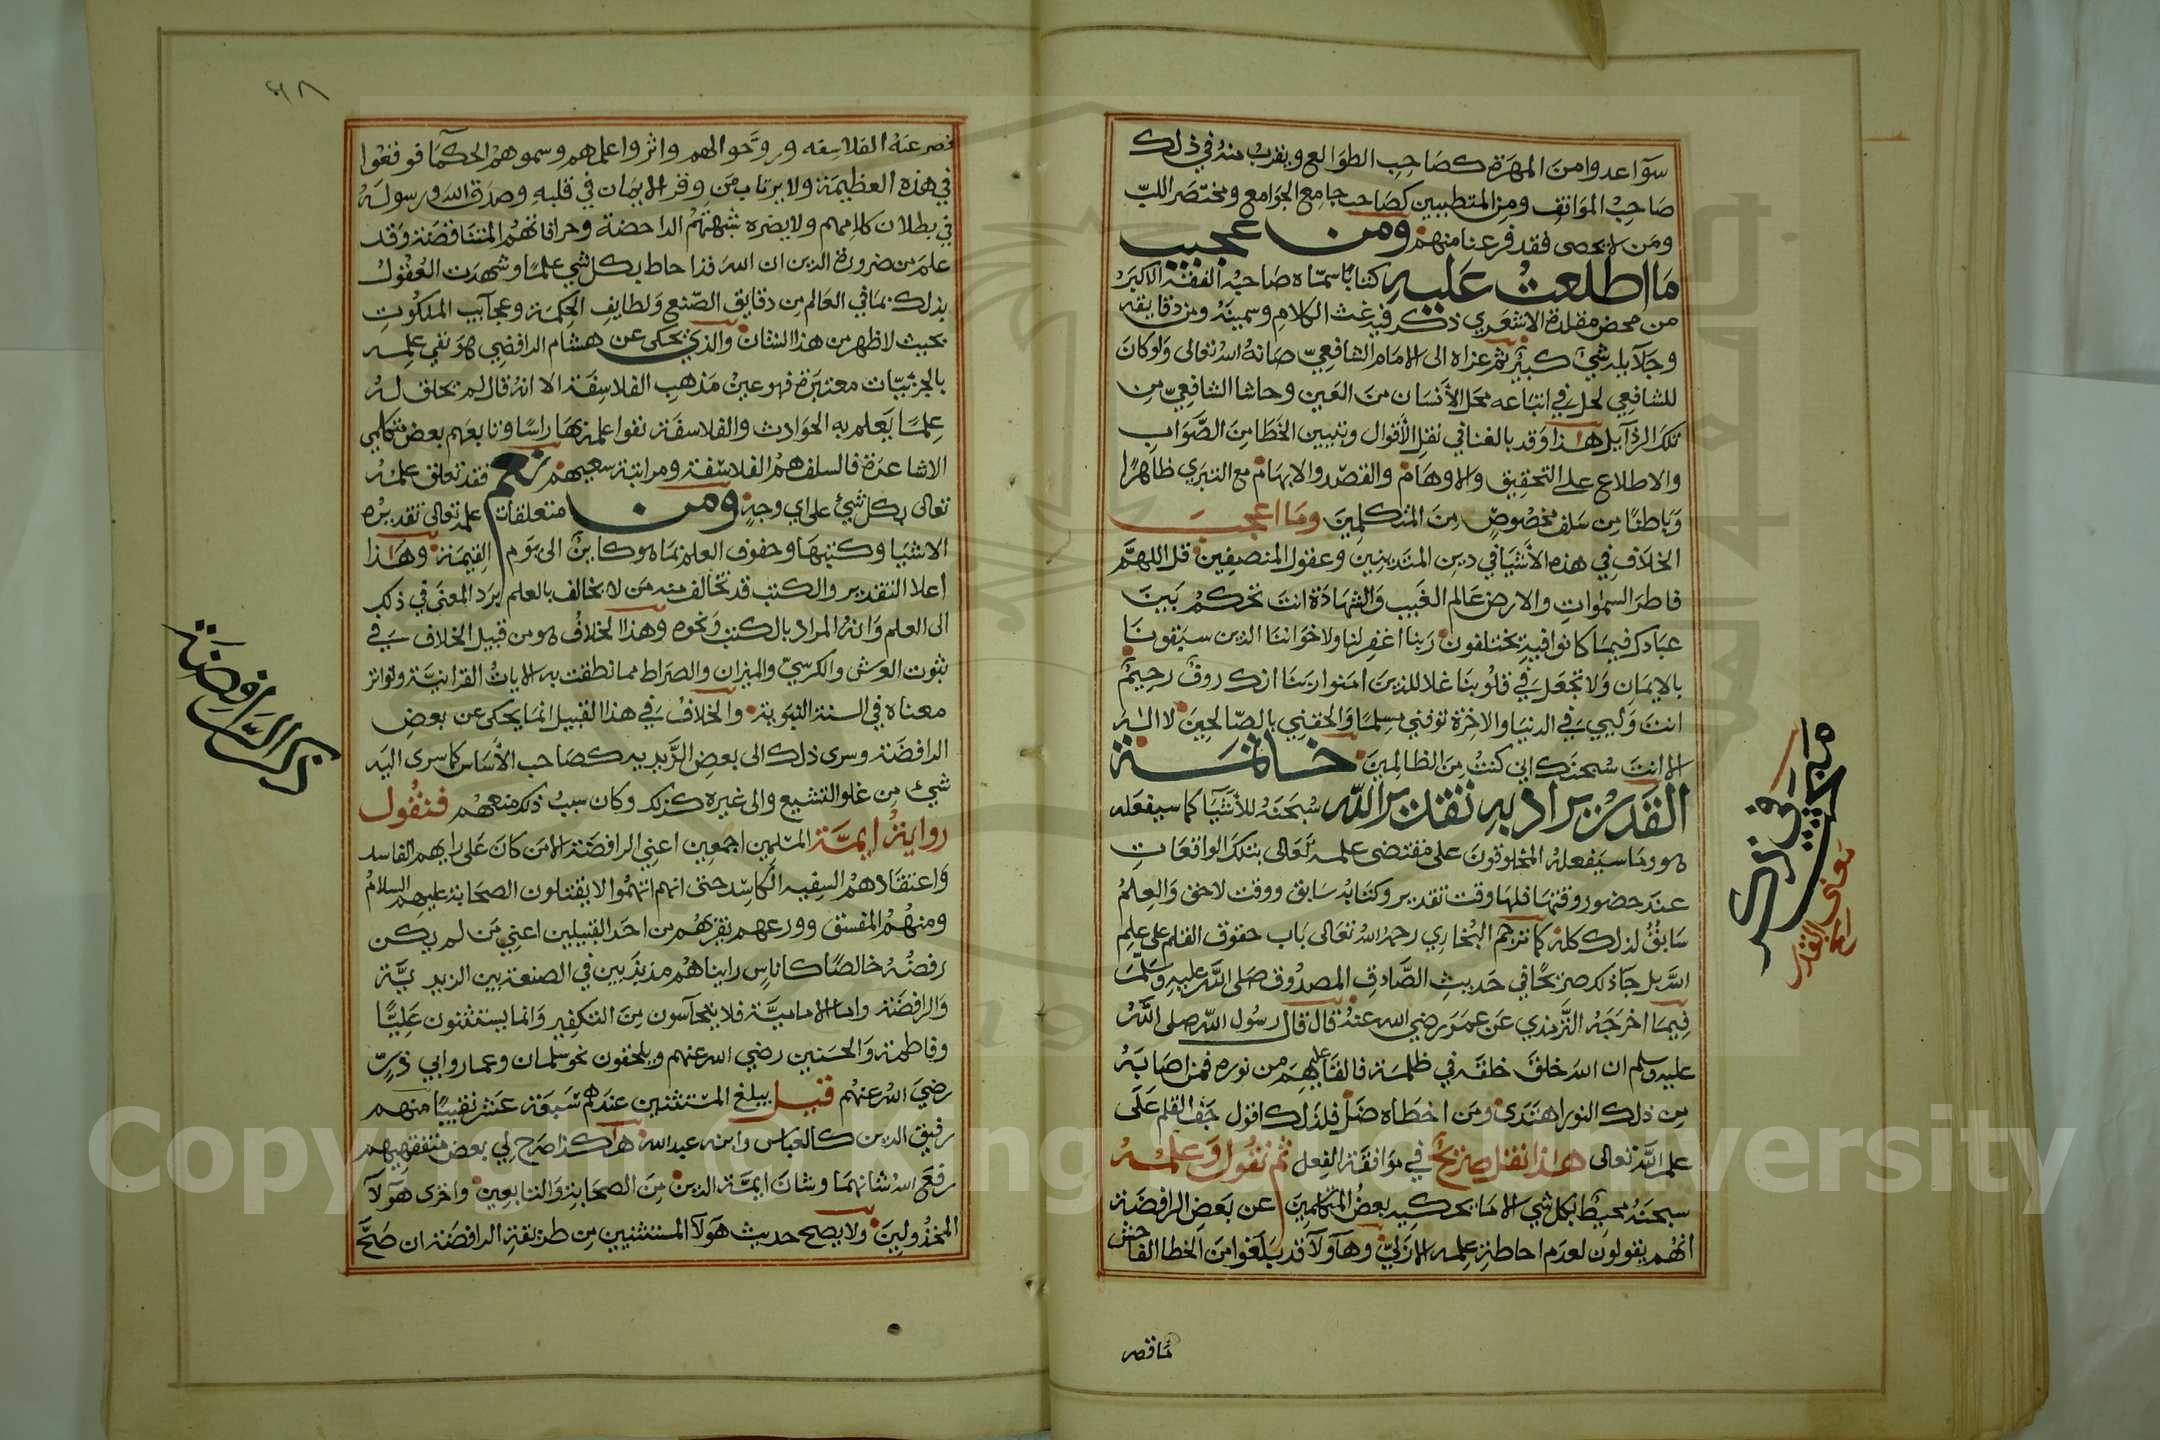 سوآ اعدوا من المهرة كصاحب الطوالع ويقرب منه في ذلك
صاحب المواقف ومن المتطببين كصاحب جامع الجوامع ومختصر اللب
ومن لا يحصى فقد فرغنا منهم ومن عجيب
ما اطلعت عليه كتابا سماه صاحبه الفقه الاكبر
من محض مقلدة الاشعري ذكر فيه غث الكلام وسمينه ومن دقايقه
وجلآيله شيء كبير ثم عزاه الى الامام الشافعي صانه الله تعالى ولو كان
للشافعي لحل في اتباعه محل الأنسان من العين وحاشا الشافعي من
تلك الرذآيل هذا وقد بالغنا في نقل الأقوال وتبيين الخطا من الصواب
والاطلاع على التحقيق والاوهام والقصد والابهام مع التبري ظاهرا
وباطنا من سلف مخصوص من المتكلمين وما اعجب
الخلاف في هذه الأشيا في دين المتدينين وعقول المنصفين قل اللهم
فاطر السموات والارض عالم الغيب والشهادة انت تحكم بين
عبادك فيما كانوا فيه يختلفون ربنا اغفر لنا ولاخواننا الذين سبقونا
بالايمان ولا تجعل في قلوبنا غلا للذين امنوا ربنا انك روف رحيم
انت وليي في الدنيا والاخرة توفني مسلما والحقني بالصالحين لا اله
الا انت سبحنك اني كنت من الظالمين خاتمة
القدر يراد به تقدير الله سبحنه للأشيآ كما سيفعله
هو وما سيفعله المخلوقون على مقتضى علمه تعالى بتلك الواقعات
عند حضور وقتها فلها وقت تقدير وكتابة سابق ووقت لاحق والعلم
سابق لذلك كله كما ترجم البخاري رحمه الله تعالى باب حقوف القلم على علم
الله بل جا ذلك صريحا في حديث الصادق المصدوق صلى الله عليه وسلم
فيما اخرجه الترمذي عن عمر رضي الله عنه قال قال رسول الله صلى الله
عليه وسلم ان الله خلق خلقه في ظلمة فالقا عليهم من نوره فمن اصابه
من ذلك النور اهتدى ومن اخطاه ضل فلذلك اقول جف القلم على
علم الله تعالى هذا نقل صريح في موافقة الفعل ثم نقول وعلمه
سبحنه محيط بكل شي الا ما يحكيه بعض المتكلمين عن بعض الرافضة
انهم يقولون لعدم احاطة علمه الازلي وهآولآ قد بلغوا من الخطا الفاحش
ما قصر
معنى
القدر
٦٨
قصر عنه الفلاسفه وروحوالهم واثروا علمهم وسموهم الحكما فوقعوا
في هذه العظيمة ولا يرتاب من وقر الايمان في قلبه وصدق الله ورسوله
في بطلان كلامهم ولا يضره شبهتهم الداحضة وخرافاتهم المتناقضة وقد
علم من ضرورة الدين ان الله قد احاط بكل شي علما وشهدت العقول
بذلك بما في العالم من دقايق الصنع ولطايف الحكمة وعجآيب الملكوت
بحيث لا ظهر من هذا الشان والذي يحكى عن هشام الرافضي هو نفي علمه
بالجزئيات معتبرة فهو عين مذهب الفلاسفة الا انه قال لم يخلق له
علما يعلم به الحوادث والفلاسفة نفوا علمه بها راسا وتابعهم بعض متكلمي
الاشاعرة فالسلف هم الفلاسفة ومراتبة سعيهم نعم فقد تعلق علمه
تعالى بكل شيء على اي وجه ومن متعلقات علمه تعالى تقديره
الاشيا وكتبها وحقوف العلم بما هو كاين الى يوم القيمة وهذا
اعلا التقدير والكتب قد تخالف فيه من لا يخالف بالعلم برد المعنى في ذلك
الى العلم وانه المراد بالكتب ونحوه وهذا الخلاف هو من قبيل الخلاف في
ثبوت العرش والكرسي والميزان والصراط مما نطقت به الايات القرانية وتواتر
معناه في السنة النبوية والخلاف في هذا القبيل انما يحكى عن بعض
الرافضة وسرى ذلك الى بعض الزيديه كصاحب الأساس كما سرى اليه
شيء من غلو التشيع والى غيره كذلك وكان سبب ذلك منعهم فنقول
رواية ايمة المسلمين اجمعين اعني الرافضة الا من كان على رايهم الفاسد
واعتقادهم السفيه الكاسد حتى انهم اتهموا لا يقبلون الصحابة عليهم السلام
ومنهم المفسق وورعهم يقرهم من احد القبيلين اعني من لم يكن
رفضه خالصا كاناس رايناهم مذبذبين في الصنعة بين الزيدية
والرافضة واما الامامية فلا يتحآسون من التكفير وانما يستثنون عليا
وفاطمة والحسنين رضي الله عنهم ويلحقون نحو سلمان وعمار وابي ذر
رضي الله عنهم قيل يبلغ المستثنين عندهم سبعة عشر نقيبا منهم
رفيق الدين كالعباس وابنه عبد الله هكذا صرح لي بعض متفقهيهم
رفع الله شانهما وشان ايمة الدين من الصحابة والتابعين واخزى هولآ
المخذولين ولا يصح حديث هولآ المستثنين من طريقة الرافضة ان صح
ذكر الرافضة